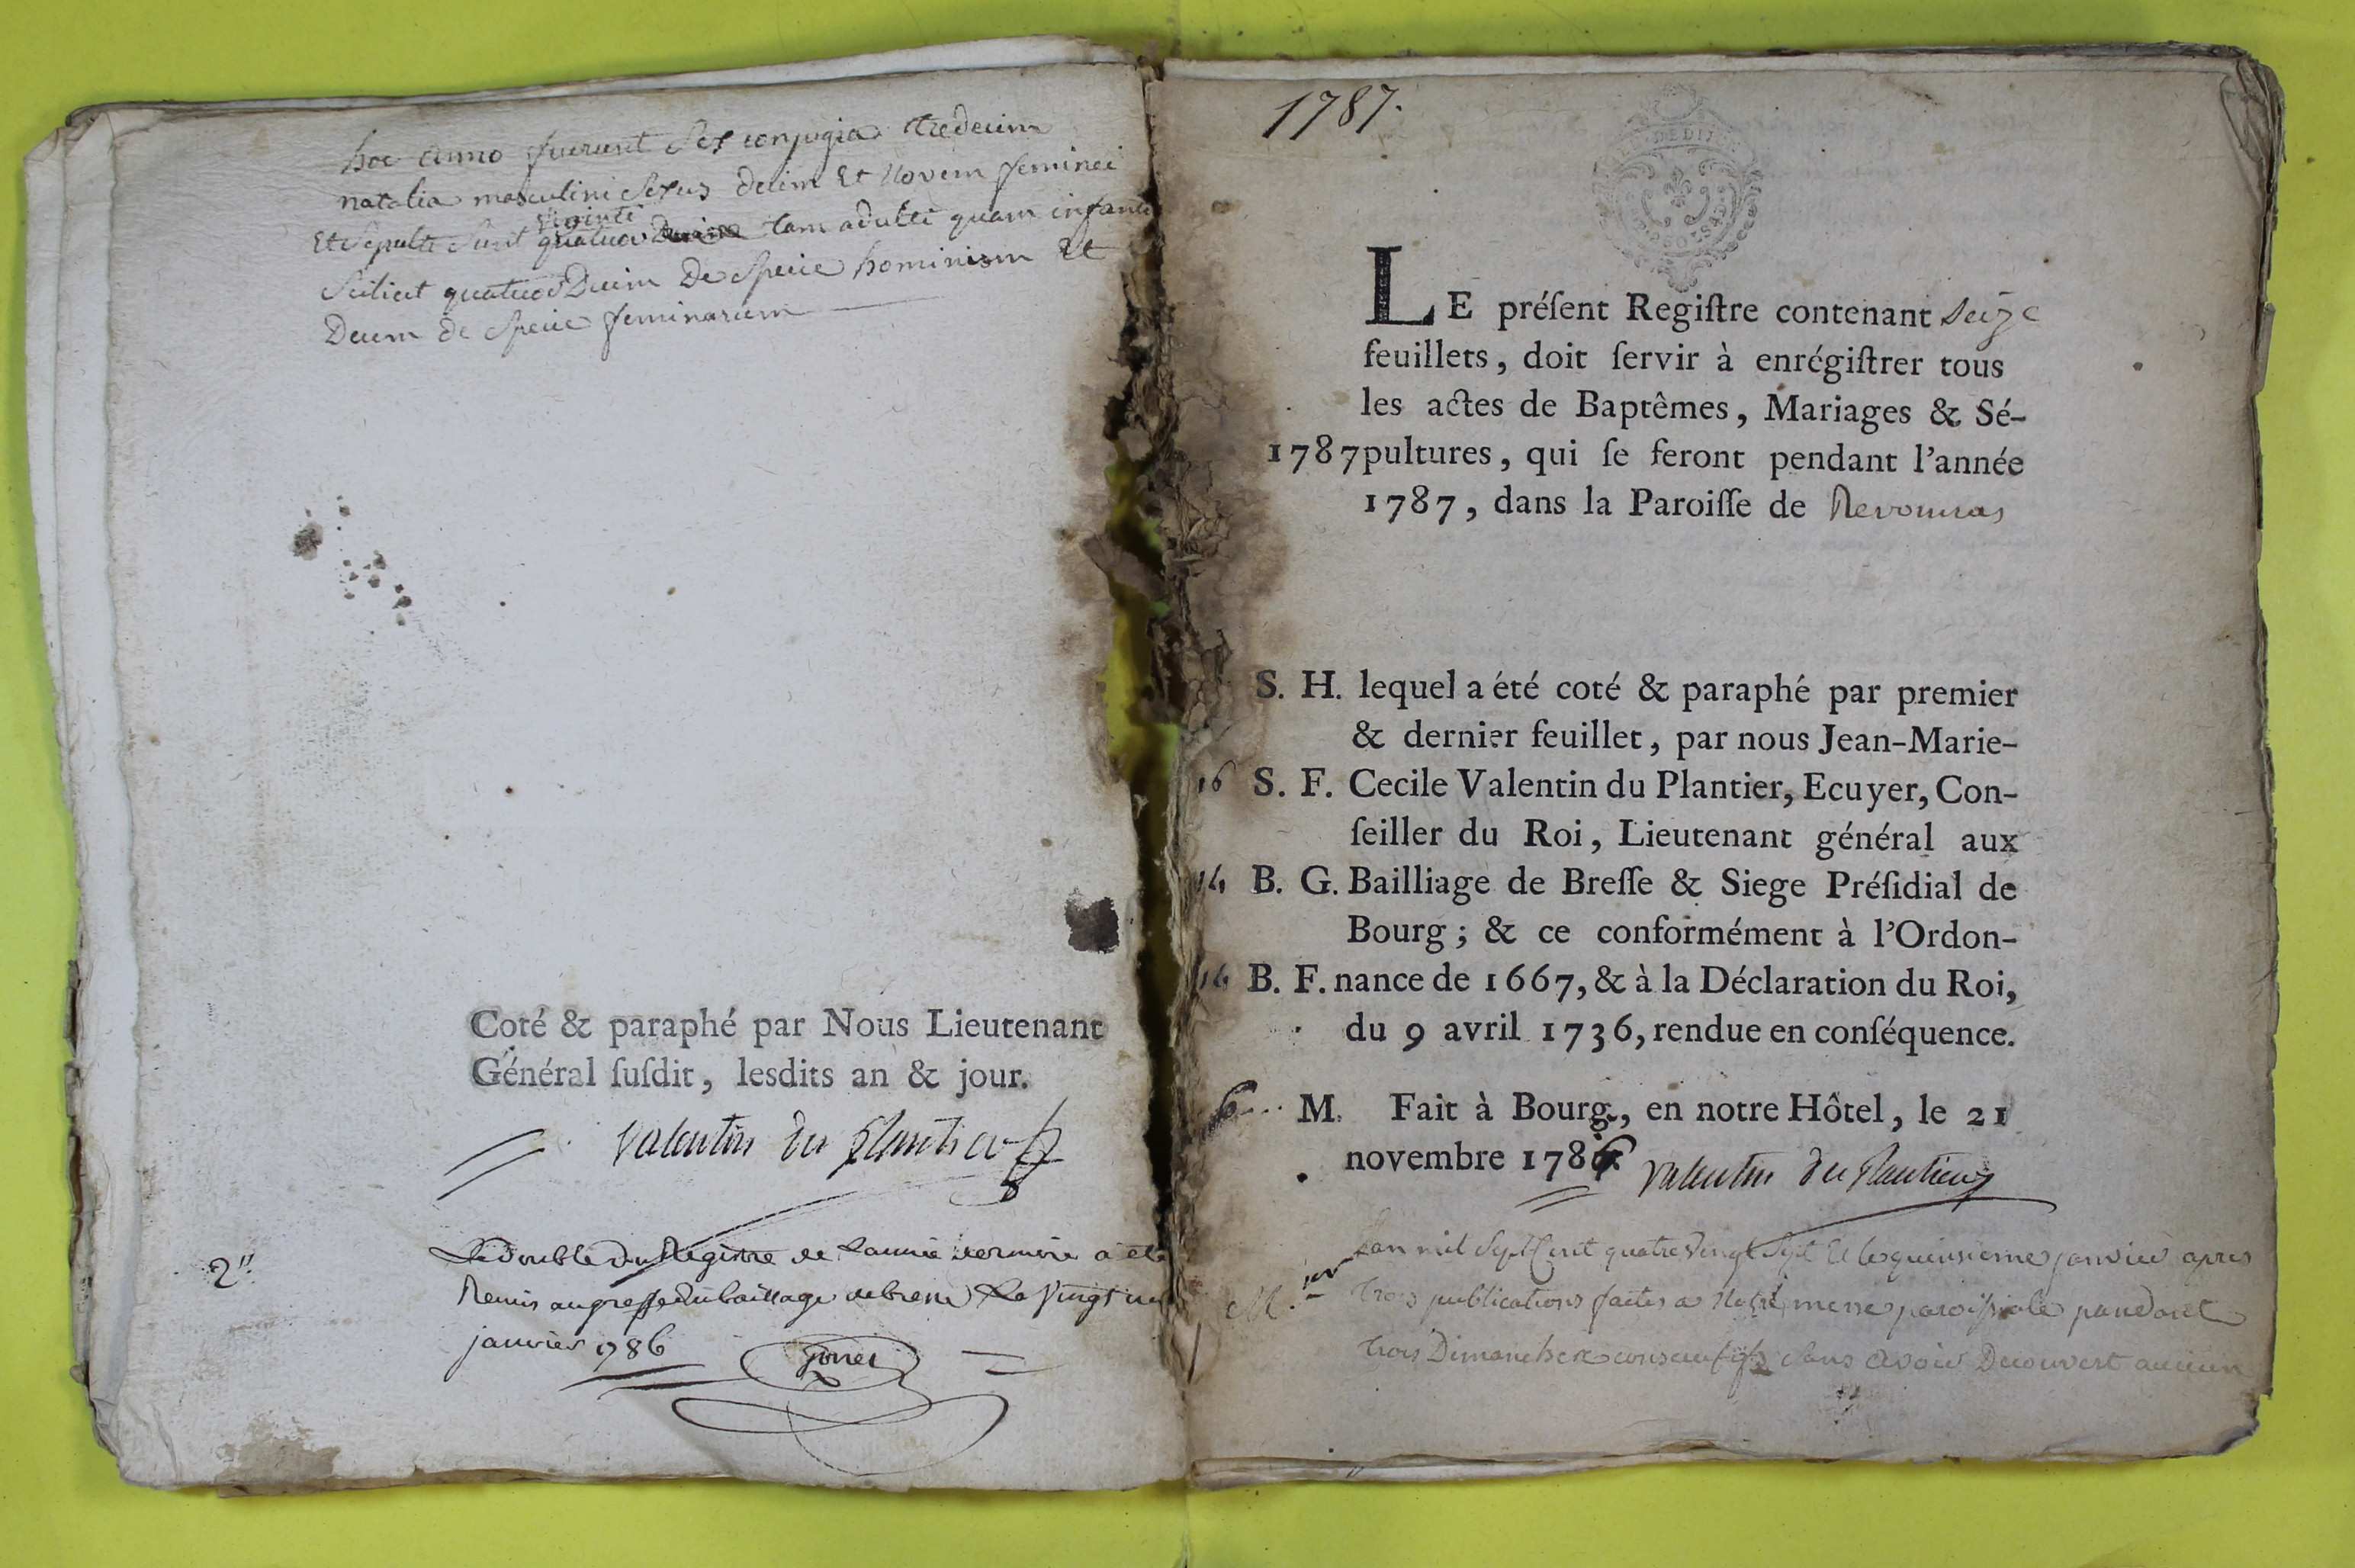 hoc anno fuerunt sex conjugia tredecim
natalia masculini sexus decim Et Novem feminei
viginti
Et sepulti sunt quatuor tam adulti quam infante
scilicet quatuor Decim De specie hominum Et
Decem de specie feminarum
Coté & paraphé par Nous Lieutenant
Général ſuſdit, lesdits an & jour.
Valentin du plantier
2"
Le double du Registre de l'année derniere a eté
Remis au greffe du bailliage de bresse Le Vingt
janvier 1786
1787.
LE préſent Regiſtre contenant seize
feuillets, doit ſervir à enrégiſtrer tous
les actes de Baptêmes, Mariages & Sé-
1787 pultures, qui ſe feront pendant l'année
1787, dans la Paroiſſe de Revonnas
S. H. lequel a été coté & paraphé par premier
& dernier feuillet, par nous Jean-Marie-
16 S. F. Cecile Valentin du Plantier, Ecuyer, Con-
ſeiller du Roi, Lieutenant général aux
14 B. G. Bailliage de Breſſe & Siege Préſidial de
Bourg ; & ce conformément à l'Ordon-
14 B. F. nance de 1667, & à la Déclaration du Roi,
du 9 avril 1736, rendue en conſéquence.
6 M. Fait à Bourg, en notre Hôtel, le 21
novembre 1786. Valentin du Plantier
Lan mil Sept Cent quatre Vingt Sept Et le quinsieme janvier apres
M. ier trois publications faites a Notre messe paroissiale pandant
trois Dimanche consecutifs sans avoir Decouvert aucun